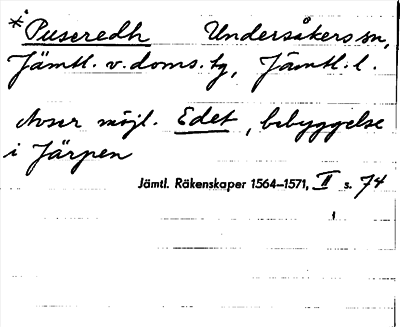 *Puseredh Undersåkers sn,
Jämtl. v. doms. tg, Jämtl. l.
Avser möjl. Edet, bebyggelse
i Järpen
Jämtl. Räkenskaper 1564–1571, II s. 74